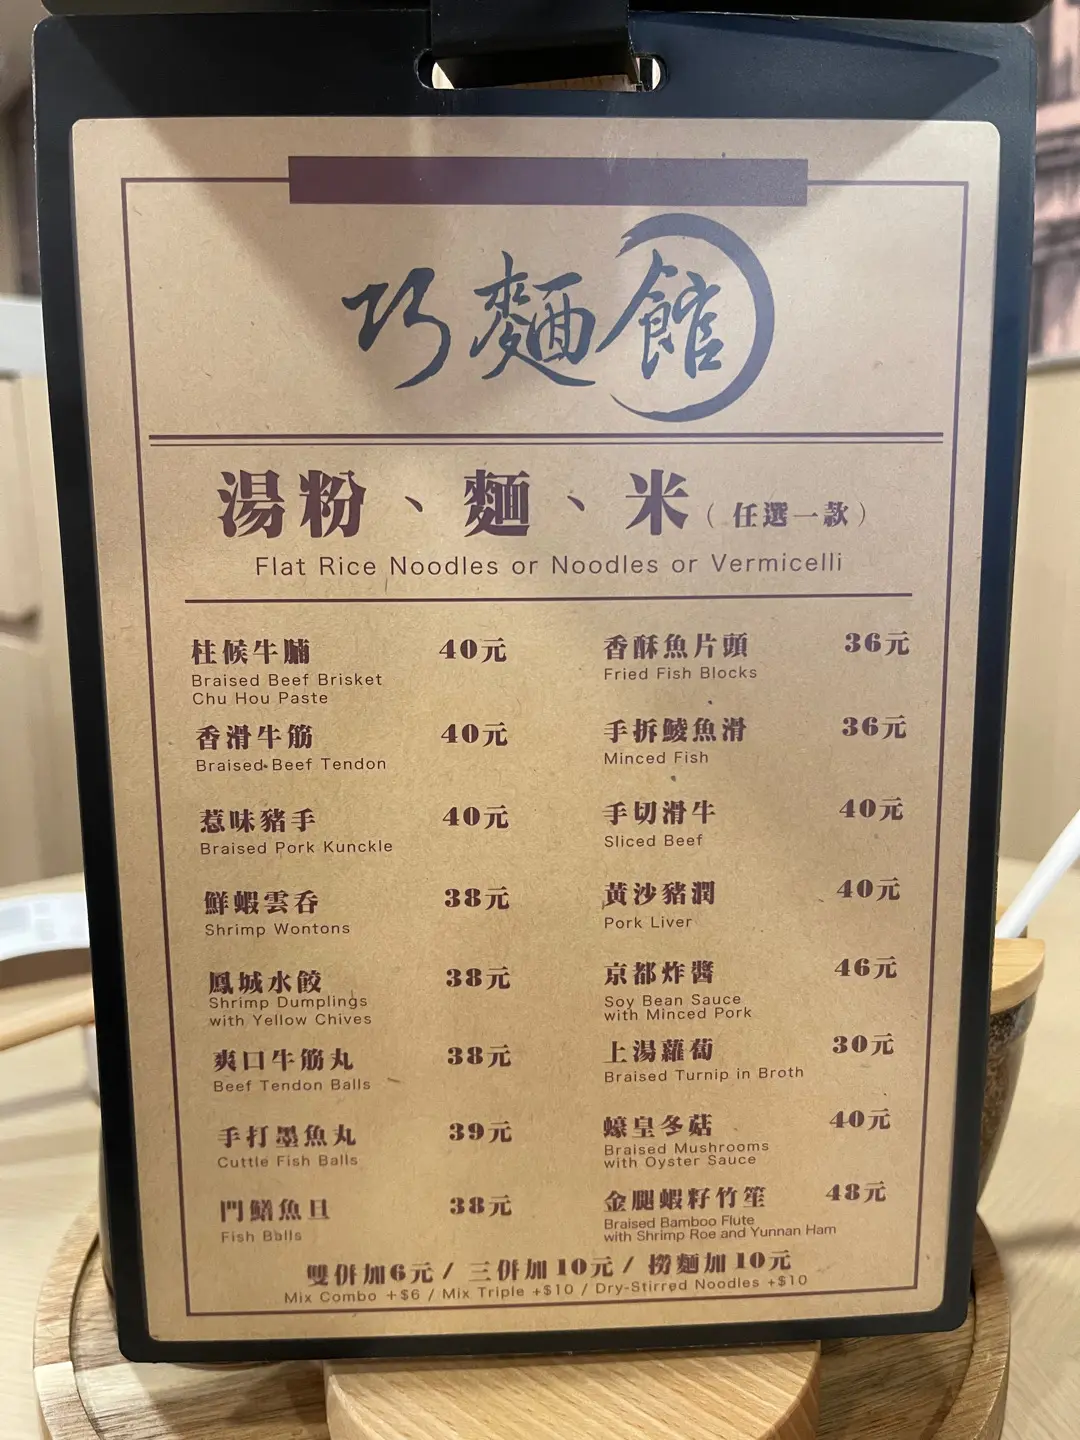 巧麵館
湯粉、麵、米（任選一款）
Flat Rice Noodles or Noodles or Vermicelli
柱候牛腩 40元
Braised Beef Brisket
Chu Hou Paste
香滑牛筋 40元
Braised Beef Tendon
惹味豬手 40元
Braised Pork Kunckle
鮮蝦雲吞 38元
Shrimp Wontons
鳳城水餃 38元
Shrimp Dumplings
with Yellow Chives
爽口牛筋丸 38元
Beef Tendon Balls
手打墨魚丸 39元
Cuttle Fish Balls
門鱔魚旦 38元
Fish Balls
香酥魚片頭 36元
Fried Fish Blocks
手拆鯪魚滑 36元
Minced Fish
手切滑牛 40元
Sliced Beef
黃沙豬潤 40元
Pork Liver
京都炸醬 46元
Soy Bean Sauce
with Minced Pork
上湯蘿蔔 30元
Braised Turnip in Broth
蠔皇冬菇 40元
Braised Mushrooms
with Oyster Sauce
金腿蝦籽竹笙 48元
Braised Bamboo Flute
with Shrimp Roe and Yunnan Ham
雙併加6元 / 三併加10元 / 撈麵加10元
Mix Combo +$6 / Mix Triple +$10 / Dry-Stirred Noodles +$10